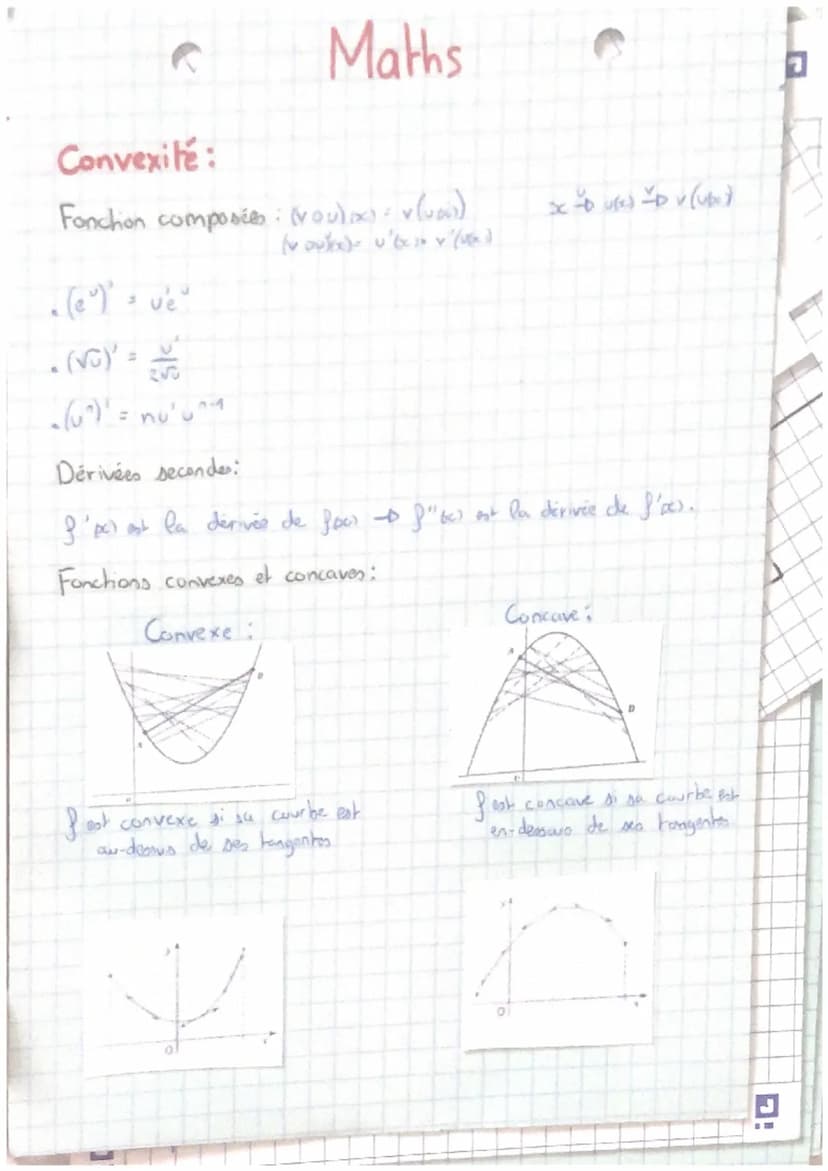 Maths
Convexité :
Fonction composées : (v o u)(x) = v(u(x))
x →ᵘ u(x) →ᵛ v(u(x))
(v o u)'(x) = u'(x) × v'(u(x))
• (eᵘ)' = u'eᵘ
• (√u)' = u'/2√u
• (uⁿ)' = nu'uⁿ⁻¹
Dérivées secondes :
f'(x) est la dérivée de f(x) → f''(x) est la dérivée de f'(x).
Fonctions convexes et concaves :
Convexe :
Concave :
A
B
A
B
f est convexe si sa courbe est
au-dessus de ses tangentes
f est concave si sa courbe est
en-dessous de ses tangentes
y
O
x
y
O
x